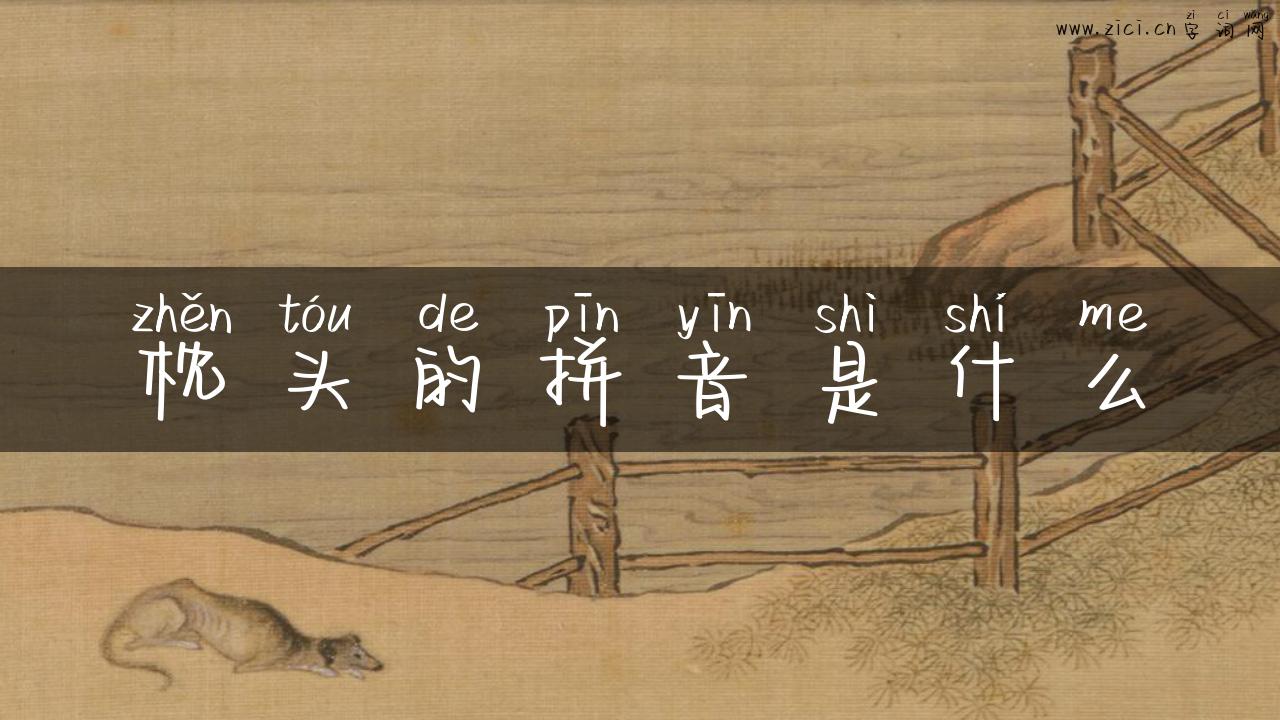 zì cí wǎng
www.zici.cn 字词网
zhěn tóu de pīn yīn shì shí me
枕头的拼音是什么